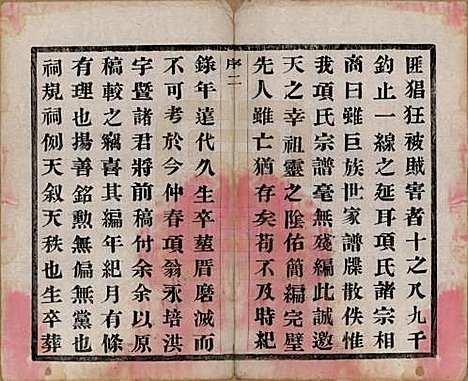 匪猖狂被賊害者十之八九千
鈞止一線之延耳項氏諸宗相
商曰雖巨族世家譜牒散佚惟
我項氏宗譜毫無殘編此誠邀
天之幸祖靈之陰佑簡編完璧
先人雖亡猶存矣苟不及時紀
序二
錄年遠代久生卒塟厝磨滅而
不可考於今仲春項翁永培洪
宇暨諸君將前稿付余余以原
稿較之竊喜其編年紀月有條
有理也揚善銘勲無偏無黨也
祠規祠例天叙天秩也生卒葬